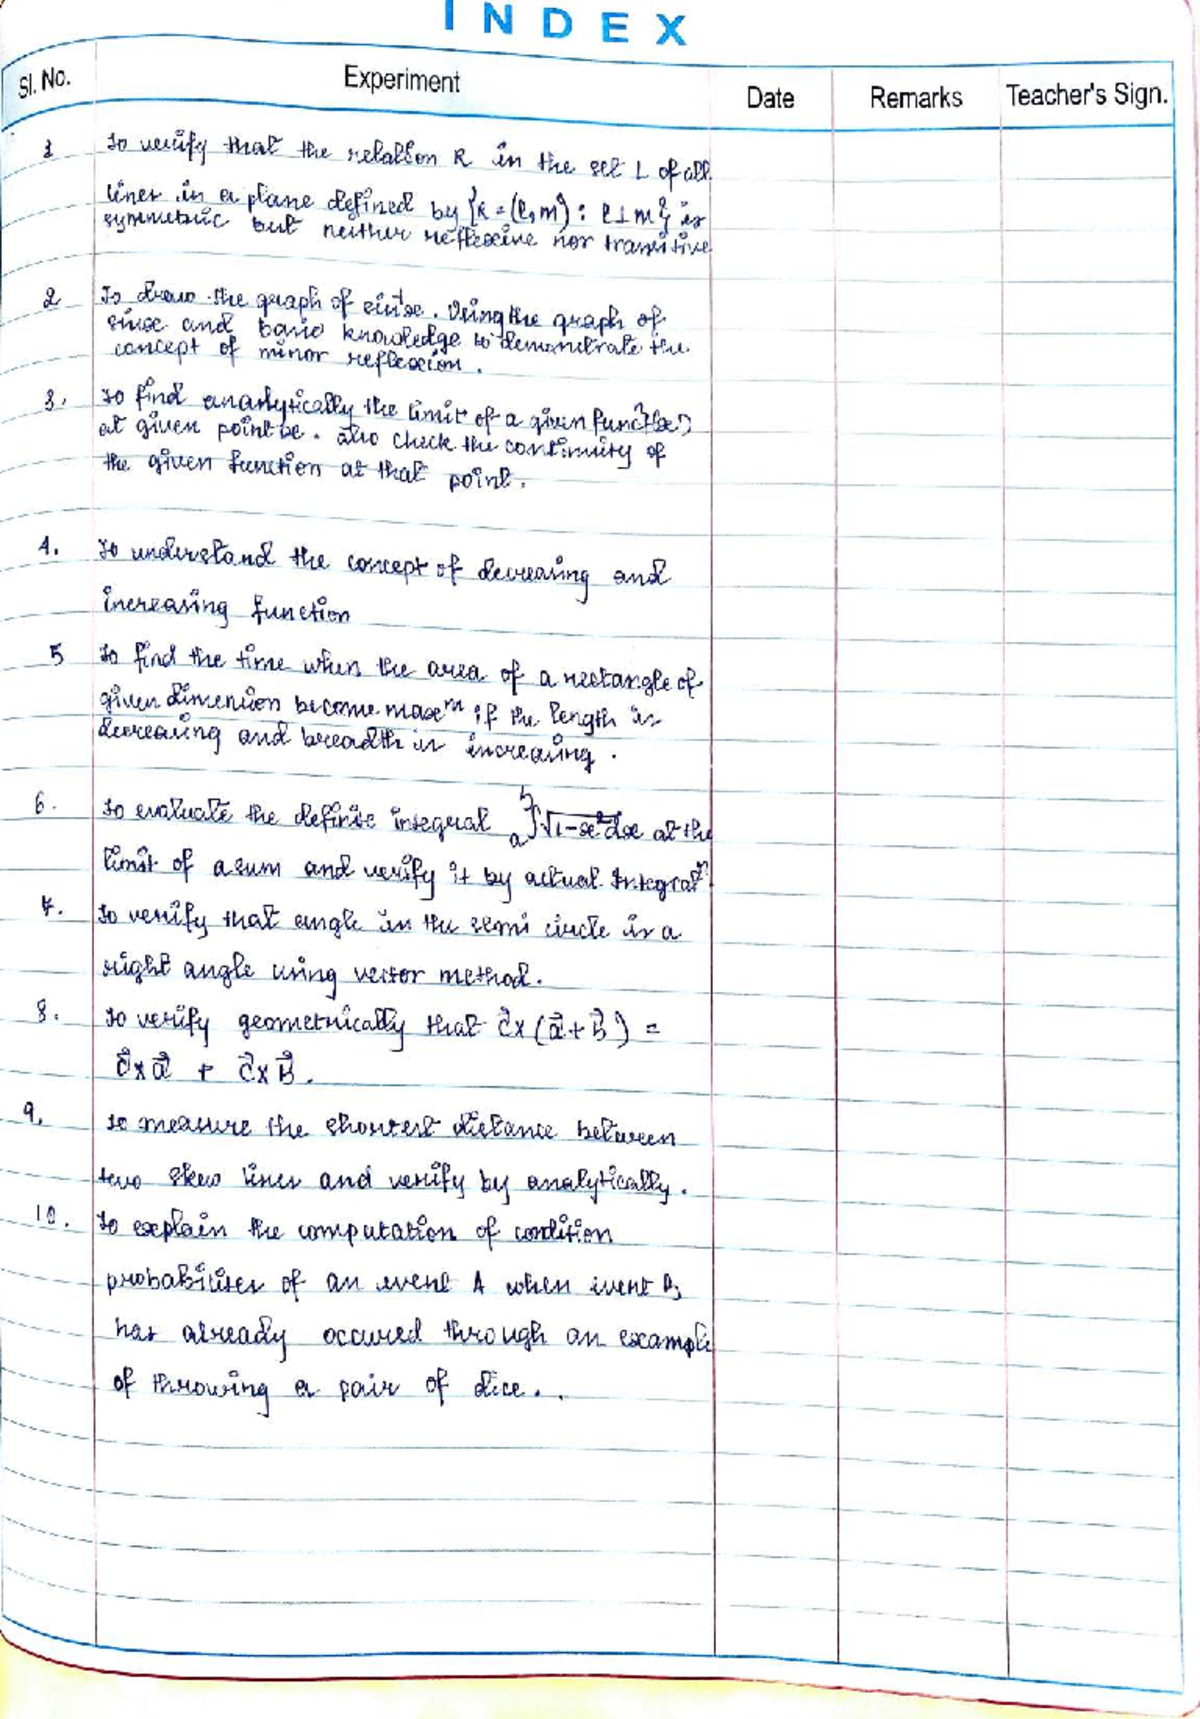 INDEX
Sl. No. Experiment Date Remarks Teacher's Sign.
1 To verify that the relation R in the set L of all
lines in a plane defined by {R = (l, m) : l ⊥ m} is
symmetric but neither reflexive nor transitive
2 To draw the graph of sin⁻¹x. Using the graph of
sinx and basic knowledge to demonstrate the
concept of mirror reflexion.
3. To find ananlytically the limit of a given func f(x)
at given point x. Also check the continuity of
the given function at that point.
4. To understand the concept of decreasing and
increasing function
5 To find the time when the area of a rectangle of
given dimension become maxᵐ if the length is
decreasing and breadth is increasing.
6. To evaluate the definite integral ₐ∫ᵇ√1-x² dx at the
limit of a sum and verify it by actual Integratⁿ
7. To verify that angle in the semi circle is a
right angle using vector method.
8. To verify geometrically that c⃗ x (a⃗ + b⃗) =
c⃗ x a⃗ + c⃗ x b⃗.
9. To measure the shortest distance between
two skew lines and verify by analytically.
10. To explain the computation of condition
probabilities of an event A when event B
has already occured through an example
of throwing a pair of dice..